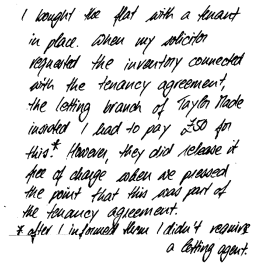 I bought the flat with a tenant
in place. When my solicitor
requested the inventory connected
with the tenancy agreement,
the letting branch of Taylor Made
insisted I had to pay £50 for
this.* However, they did release it
free of charge when we pressed
the point that this was part of
the tenancy agreement.
* after I informed them I didn't require
a letting agent.